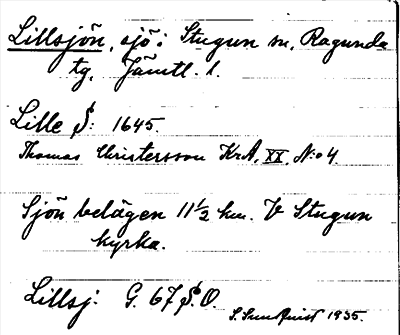 Lillsjön, sjö i Stugun sn, Ragunda
tg, Jämtl. l.
Lille S: 1645.
Thomas Christersson KrA, XX, N:o 4
Sjön belägen 11½ km. V Stugun
kyrka.
Lillsj: G. 67 S.O.
S. Sundquist 1935.